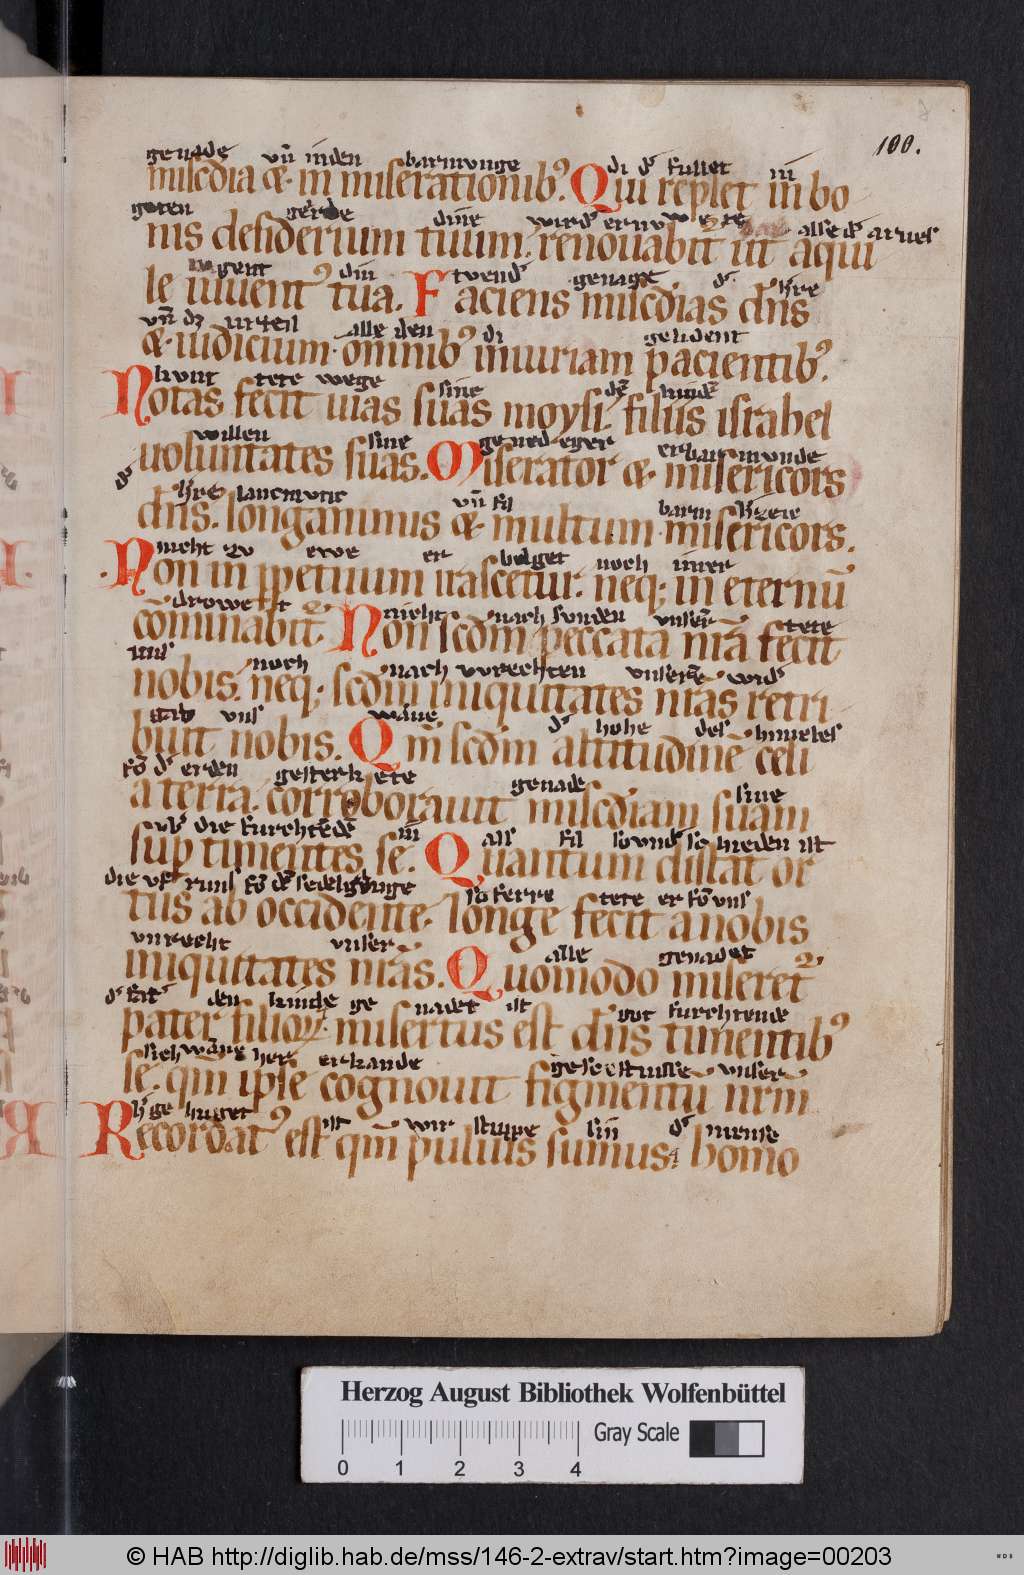 100.
genade vn̄ in den barmunge di d᷒ fullet in
misc̄dia &. in miserationib᷒. Qui replet in bo
goten dine wird᷒ alse d᷒ arnes
nis desiderium tuum. renouabit᷒ ut aqui
iugent din tuend᷒ genade d᷒ h̄re
le iuuent᷒ tua. Faciens misc̄dias dn̄s
vn̄ dz urteil alle den di gelident
&. iudicium. omnib᷒ iniuriam pacientib᷒.
kunt tete wege sine dē kindē
Notas fecit uias suas moysi. filiis israhel
willen sine genedeger erbarmunde
uoluntates suas. Miserator &. misericors
d᷒ h̄re lancmutic vn̄ fil barm h̄zete
dn̄s. longanimus &. multum misericors.
nicht zv ewe er belget noch imer
Non in ꝑpetuum irascetur. neq; in eternū
drowet nicht nach sunden vnser̄ tete
cōminabit᷒. Non scd̄m peccata nr̄a fecit
uns noch nach vnrechten vnsere wid᷒
nobis. neq; scd̄m iniquitates nr̄as retri
gab vns wāne d᷒ hohe des himeles
buit nobis. Qm̄ scd̄m altitudinē celi
fō d᷒ erden gesterkete genade sine
a terra. corroborauit misc̄diam suam
vb᷒ die furchtēdē in als fil so vnd᷒ scheden ist
sup timentes se. Quantum distat or
die vf runs fō dē sedelgange so ferre tete er fō vns
tus ab occidente. longe fecit a nobis
vnrecht vnser alle genadet
iniquitates nr̄as. Quomodo miseret᷒
d᷒ fat᷒ den kinde genadet ist got furchtende
pater filioꝝ. misertus est dn̄s timentib᷒
sich wāne her erkande gescestnisse vnser
se. qm̄ ipse cognouit figmentū nrm̄
h̄ge huget ist wir stuppe sin d᷒ mense
Recordat᷒ est qm̄ puluis sumus. homo
Herzog August Bibliothek Wolfenbüttel
Gray Scale
0 1 2 3 4
© HAB http://diglib.hab.de/mss/146-2-extrav/start.htm?image=00203